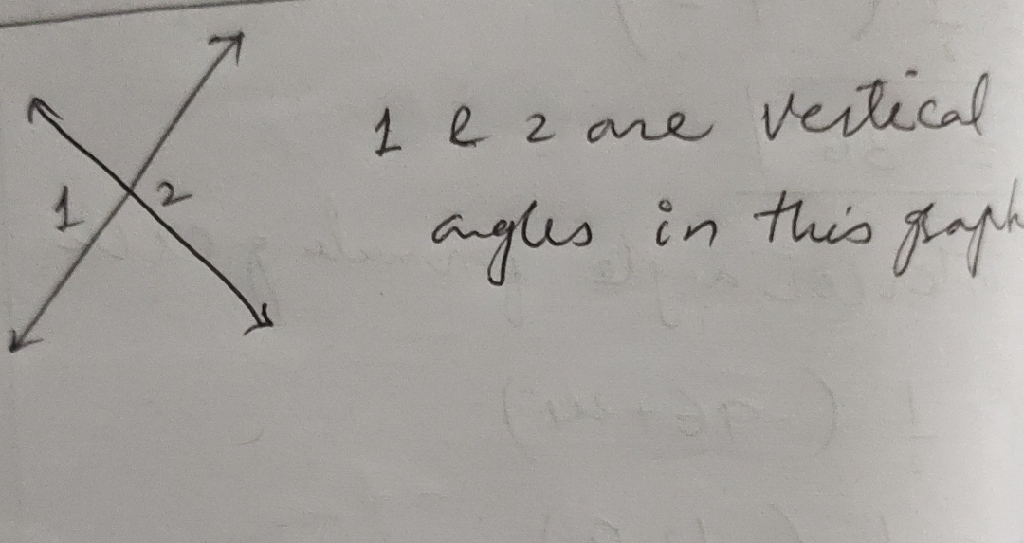 1 2
1 & 2 are vertical
angles in this graph